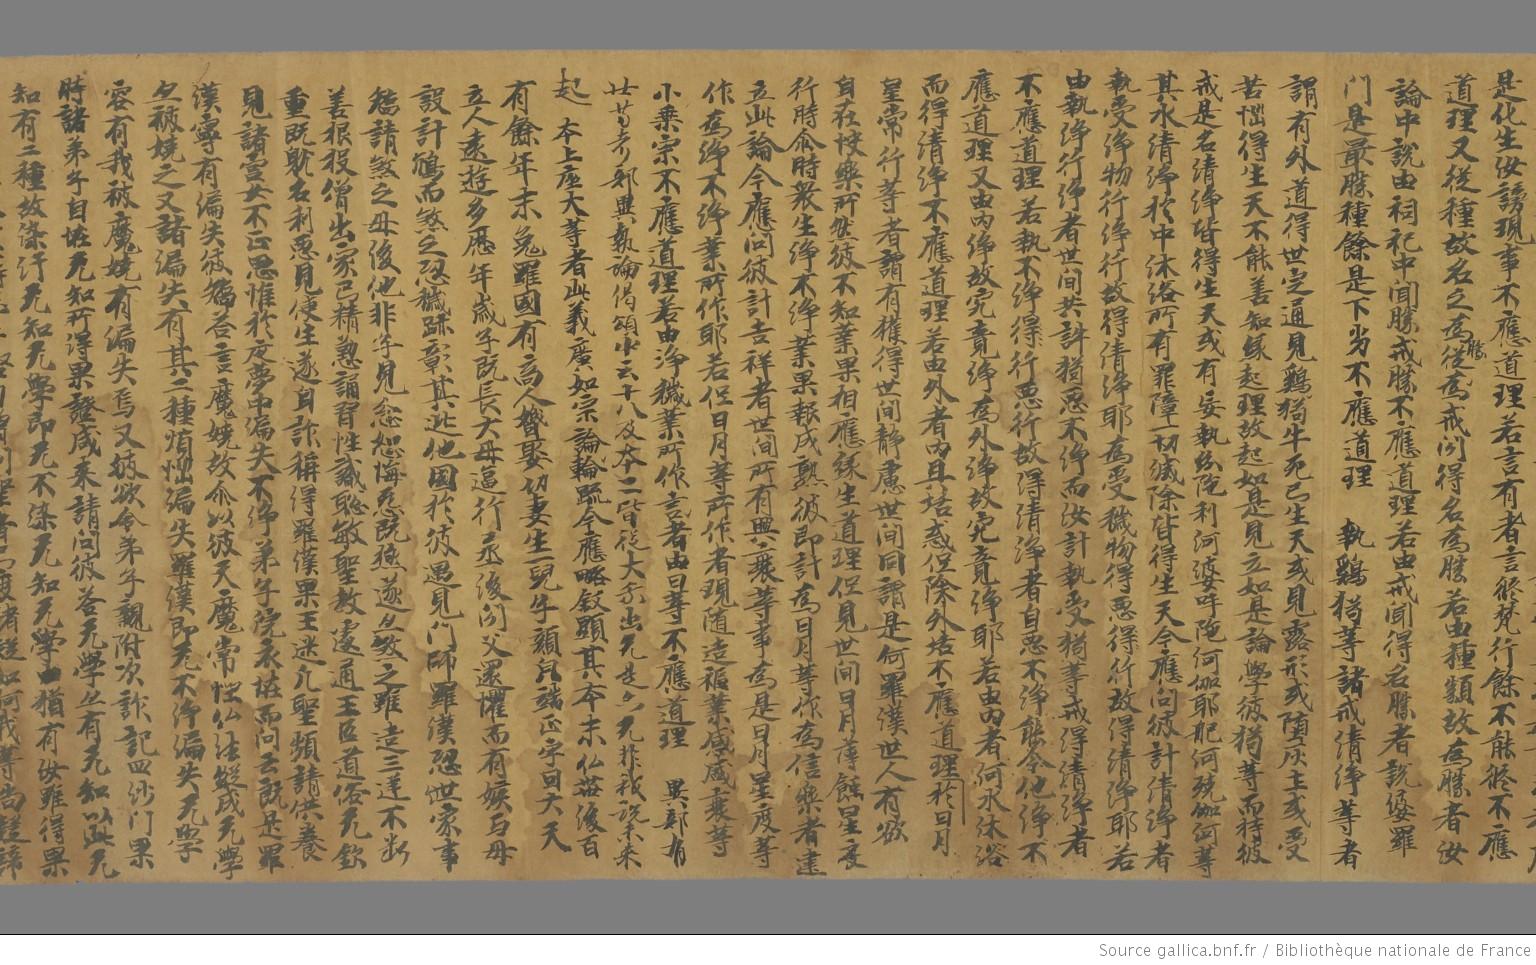 是化生汝謗現事不應道理若言有者言修梵行餘不能修不應
道理又從種故名之為從為戒聞得名為勝若由種類故為勝者汝
勝
論中說由祠祀中聞勝戒勝不應道理若由戒聞得名勝者說婆羅
門是最勝種餘是下劣不應道理 執鷄猪等諸戒清淨等者
謂有外道得世定通見鷄猪牛死已生天或見露形或墮灰土或受
苦惱得生天不能善知緣起理故起如是見立如是論學彼猪等而持彼
戒是名清淨皆得生天或有妄執於陀利河婆呼陀河伽耶河殑伽河等
其水清淨於中沐浴所有罪障一切滅除皆得生天今應問彼計清淨者
執受淨物行淨行故得清淨耶為受穢物得惡行故得清淨耶若
由執淨行淨者世間共許猪惡不淨而汝計執受猪等戒得清淨者
不應道理若執不淨得行惡行故得清淨者自惡不淨能令他淨不
應道理又由內淨故究竟淨為外淨故究竟淨耶若由內者何水沐浴
而得清淨不應道理若由外者內且垢惑但除外垢不應道理於日月
星常行等者謂有獲得世間靜慮世間同謂是何羅漢世人有欲
自在快樂所樂彼不知業果相應緣生道理但見世間日月薄蝕星度
行時爾時眾生淨不淨業果報成熟彼即計為日月等作為信樂者建
立此論今應問彼計吉祥者世間所有興衰等事為是日月星度等
作為淨不淨業所作耶若但日月等所作者現隨造福業感盛衰等
小乘宗不應道理若由淨穢業所作言者由日等不應道理 異部有
廿者邪異執論偈頌
起 本上座大等者此義廣如宗論輪疏今應略敘顯其本末仏滅後百
有餘年末兔羅國有商人婚娶幼妻生一兒牛顏皃端正字曰大天
立人遠遊多歷年歲子既長大母逼行烝後聞父還懼而有娠與母
設計鴆而煞之恐穢跡彰其逃他國於彼遇見門師羅漢恐世家事
矯請煞之母後他非子見忿恕悔惡既極遂煞之雖造三逆不斷
善根投僧出家已精懃誦習性識聰敏聖教遠通王臣道俗无欽
重既耽名利惡見便生遂自詐稱得羅漢果王迷凡聖頻請供養
見諸宮女不正思惟於夜夢中漏失不淨弟子浣衣怪而問云既是羅
漢寧有漏失彼矯答言魔嬈故爾以彼天魔常性仏法縱成无學
亦被嬈之又諸漏失有其二種煩惱漏失羅漢即无不淨漏失无學
容有我被魔嬈有漏失焉又彼欲令弟子親附次詐記四沙門果
時諸弟子自怪无知所得果證咸來請問彼答无學亦有无知以此无
知有二種故染汙无知无學即无不染无知无學由猶有汝雖得果
Source gallica.bnf.fr / Bibliothèque nationale de France